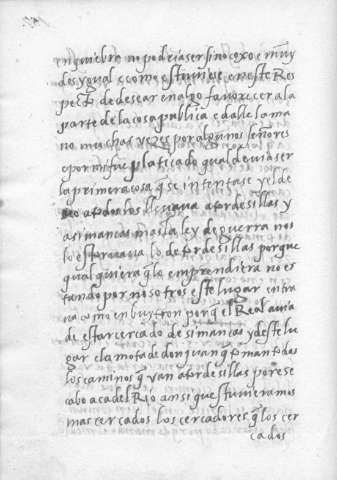 en quiebre ni podeia ser sino coxo e muy
desygual e como estuuiese en este Res
pecto de desear en algo fauorecer a la
parte de la cosa publica e dalle la ma
no muchas vezes por algunos señores
e por mi fue platicado qual deuia ser
la primera cosa q̃ se intentase y el de
seo a todos los lleuaua a tordesillas y
a simancas mas la ley de guerra nos
lo estoruaua lo de tordesillas porque
qualquiera q̃ lo emprendiera no es
tando por nosotros este lugar entra
ua como en buytron porq̃ el Real auia
de estar cercado de simancas y deste lu
gar e la mota de don juan q̃ toman todos
los caminos q̃ van a tordesillas por ese
cabo aca del Rio ansi que estuuieramos
mas cercados los cercadores q̃ los cer
cados